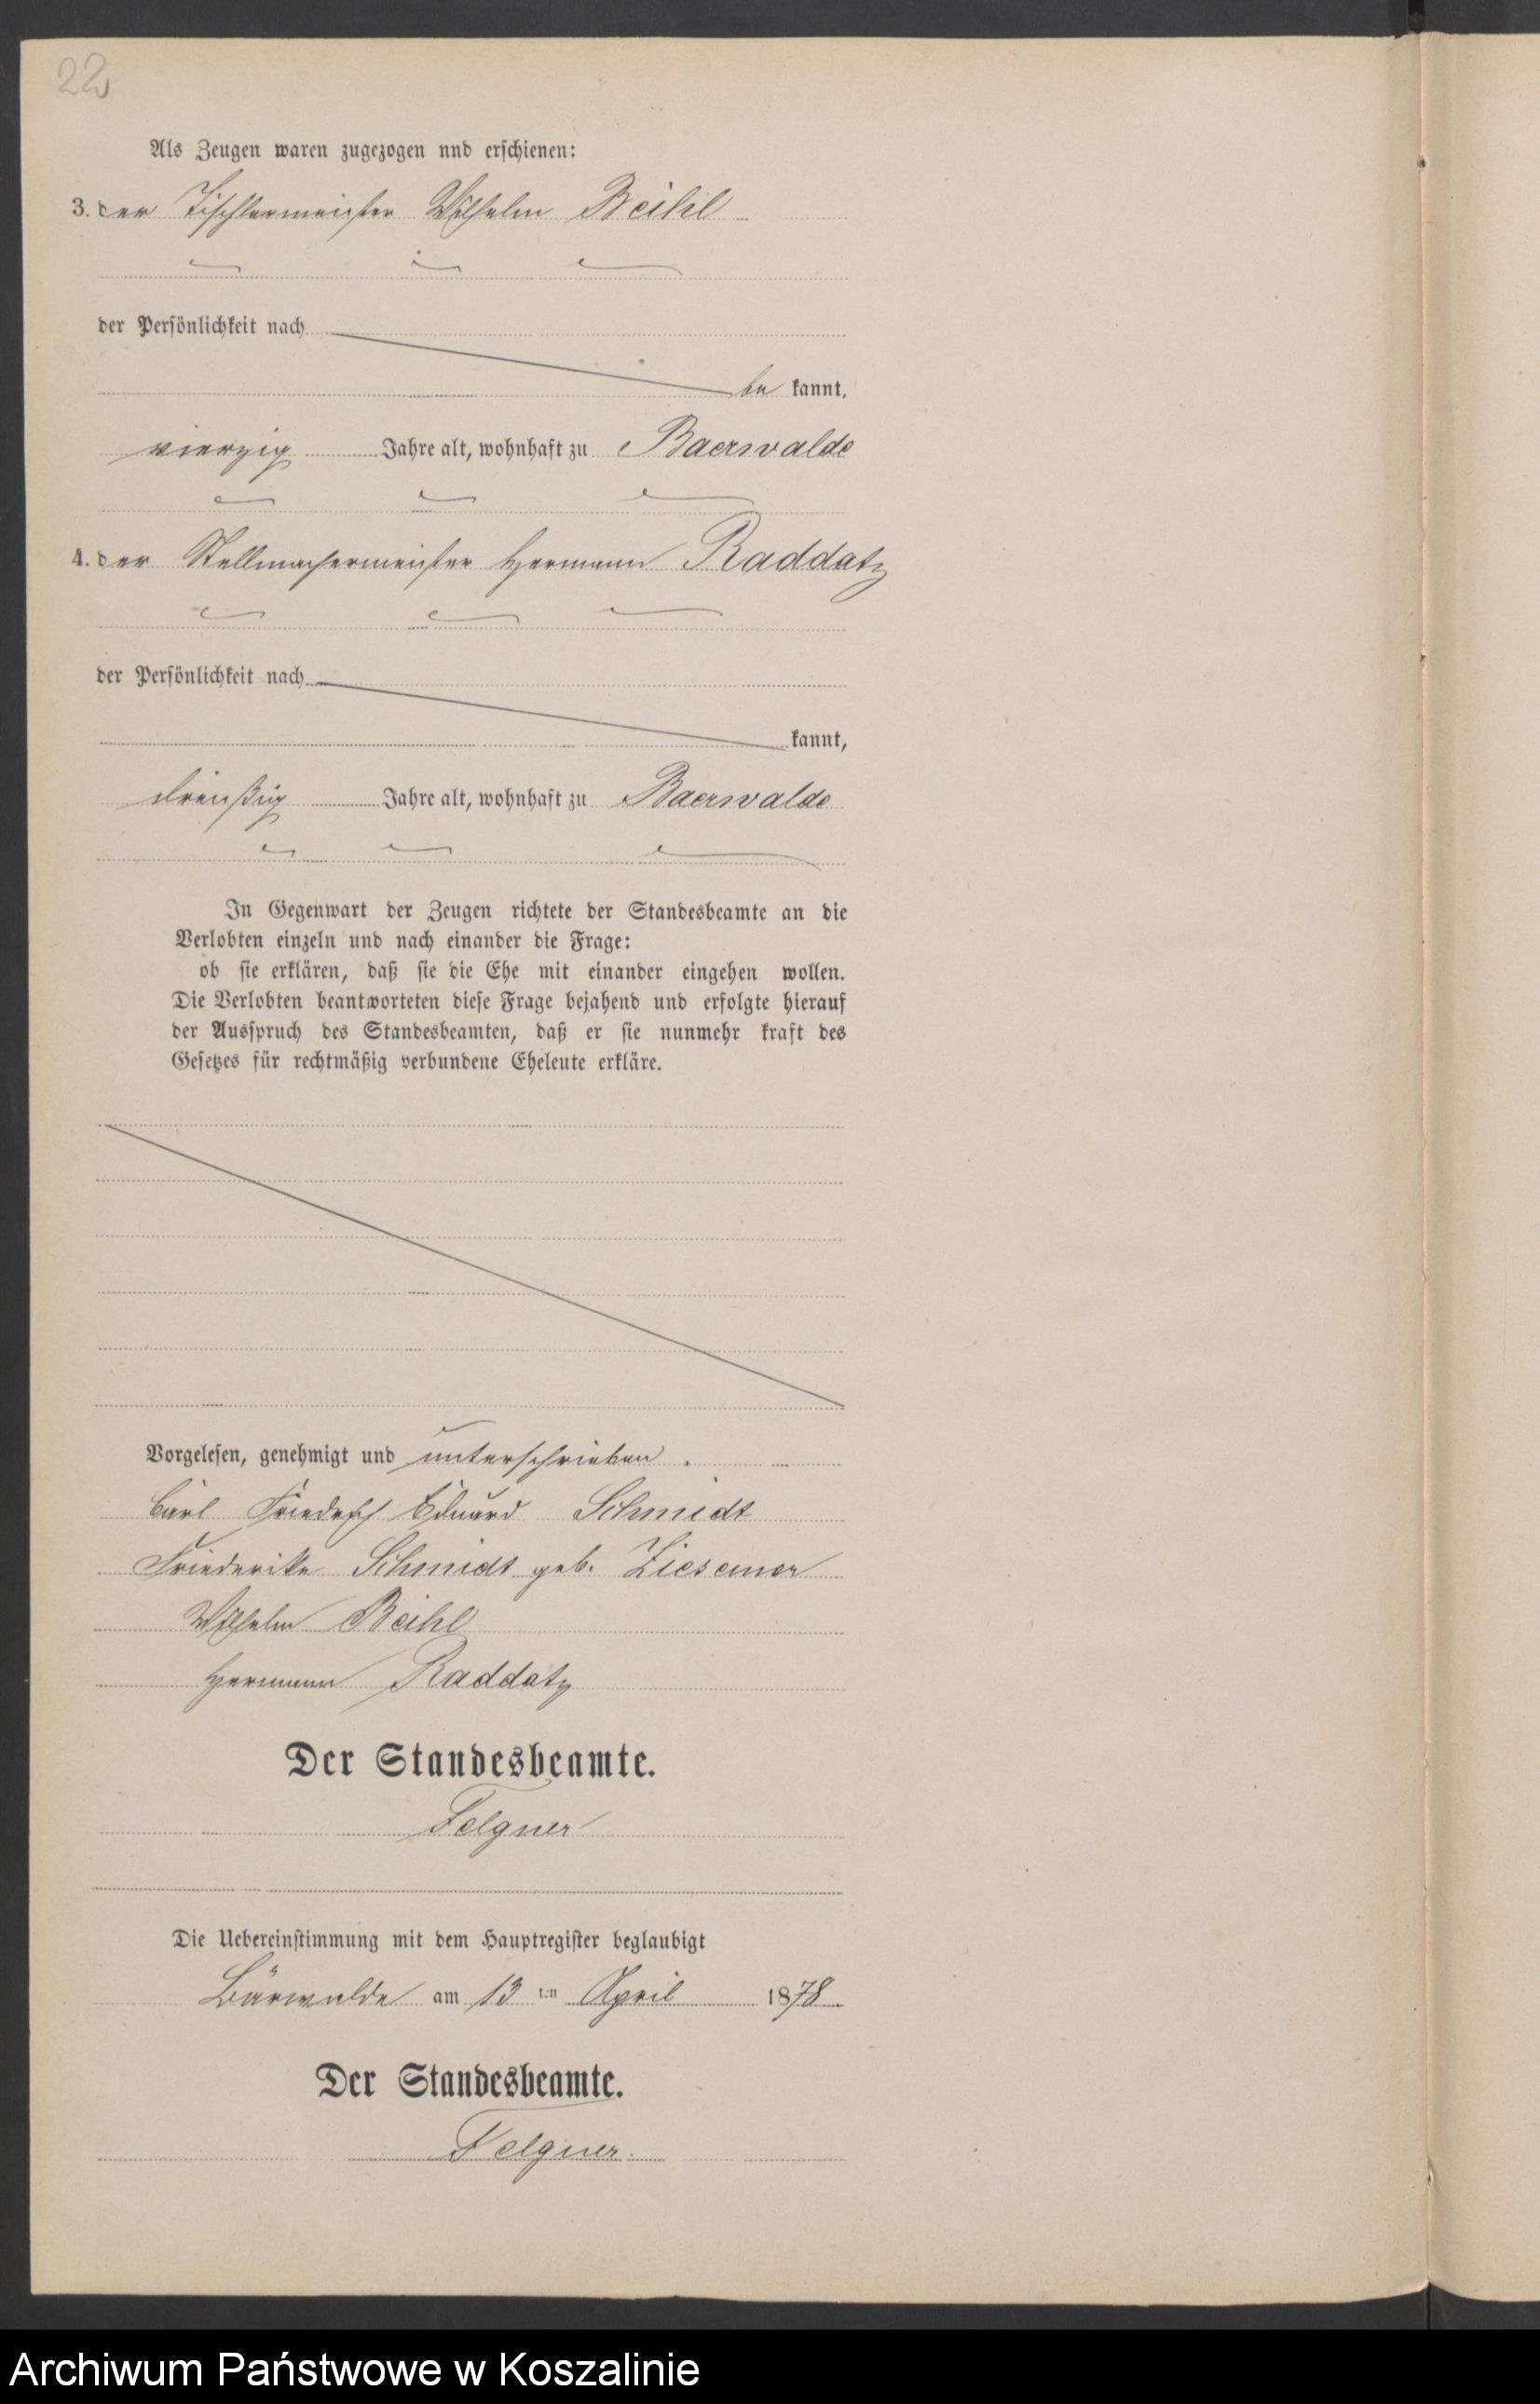 22
Als Zeugen waren zugezogen nnd erschienen:
3. der Tischlermeister Wilhelm Beihl
der Persönlichkeit nach
be kannt,
vierzig Jahre alt, wohnhaft zu Baerwalde
4. der Stellmachermeister Hermann Raddatz
der Persönlichkeit nach
kannt,
dreißig Jahre alt, wohnhaft zu Baerwalde
In Gegenwart der Zeugen richtete der Standesbeamte an die
Verlobten einzeln und nach einander die Frage:
ob sie erklären, daß sie die Ehe mit einander eingehen wollen.
Die Verlobten beantworteten diese Frage bejahend und erfolgte hierauf
der Ausspruch des Standesbeamten, daß er sie nunmehr kraft des
Gesetzes für rechtmäßig verbundene Eheleute erkläre.
Vorgelesen, genehmigt und unterschrieben.
Carl Friedrich Eduard Schmidt
Friederike Schmidt geb. Ziesemer
Wilhelm Beihl
Hermann Raddatz
Der Standesbeamte.
Felgner
Die Uebereinstimmung mit dem Hauptregister beglaubigt
Bärwalde am 13 ten April 1878.
Der Standesbeamte.
Felgner.
Archiwum Państwowe w Koszalinie